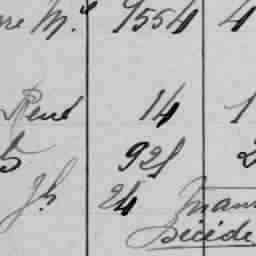 re M.e 1554 4
René 14 1
5 921 2
Jh 24
Décidé